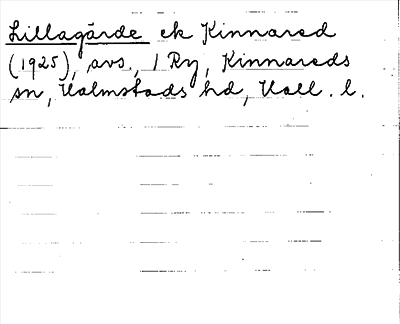 Lillagärde ek Kinnared
(1925), avs., 1 Ry, Kinnareds
sn, Halmstads hd, Hall. l.